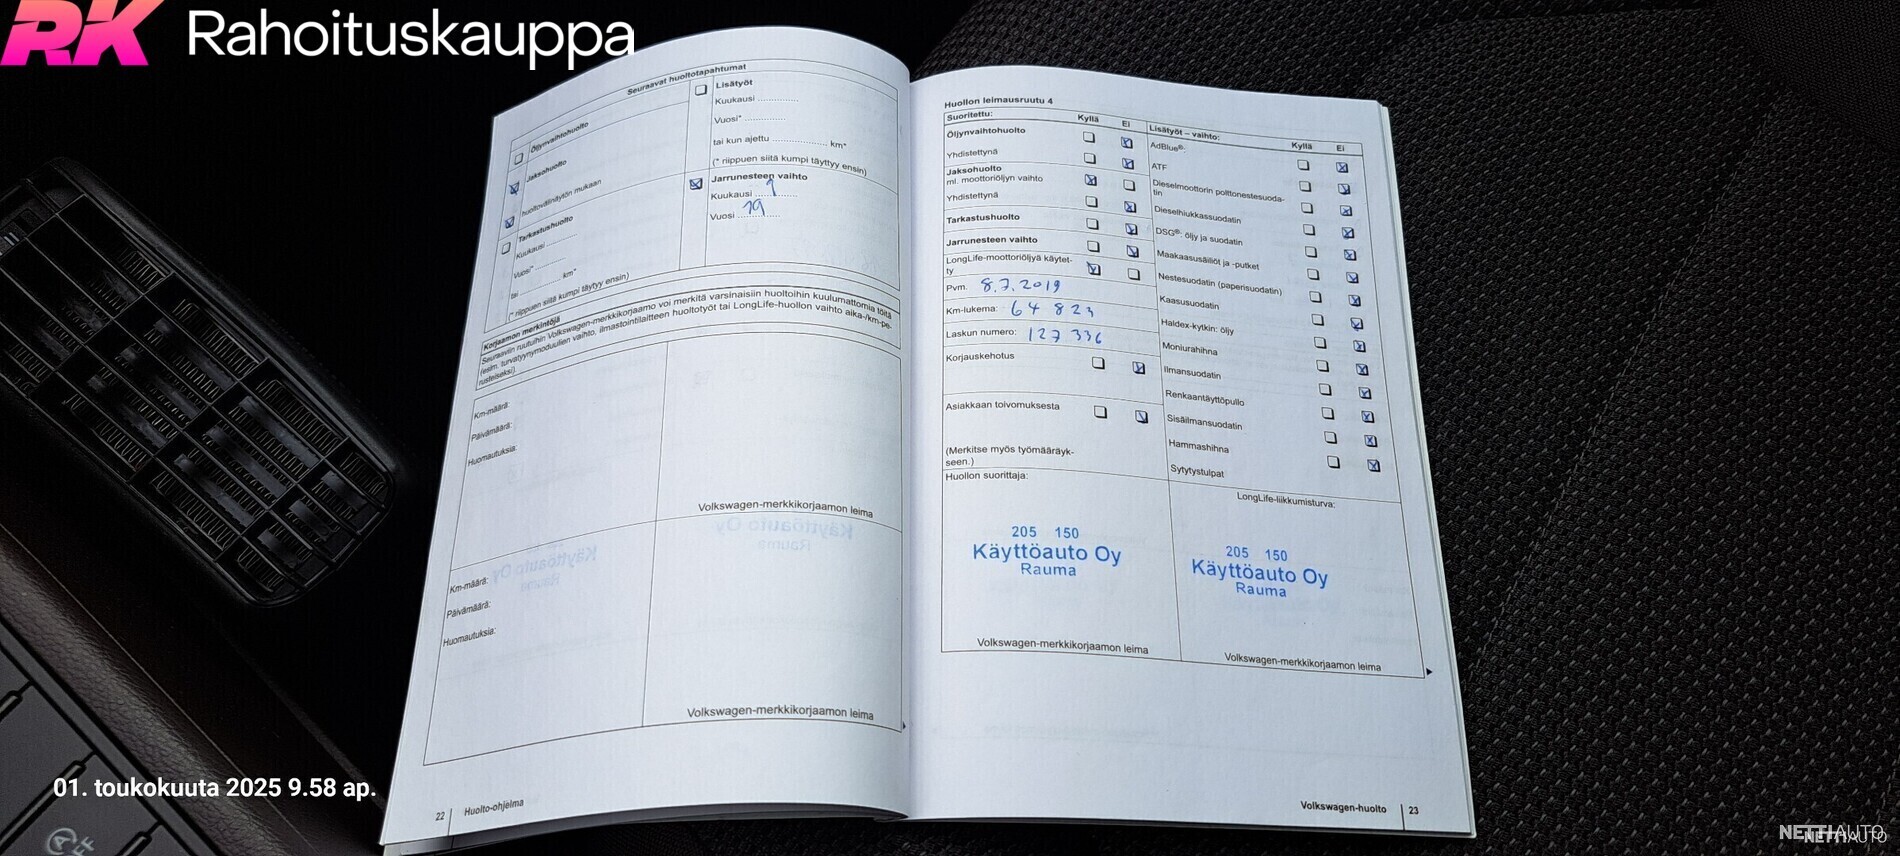 RK Rahoituskauppa
Seuraavat huoltotapahtumat
Öljynvaihtohuolto
Jaksohuolto
huoltovälinäytön mukaan
Tarkastushuolto
Kuukausi ..............
Vuosi* ..............
tai .............. km*
(* riippuen siitä kumpi täytyy ensin)
Lisätyöt
Kuukausi ..............
Vuosi* ..............
tai kun ajettu .................. km*
(* riippuen siitä kumpi täyttyy ensin)
Jarrunesteen vaihto
Kuukausi 9
Vuosi 19
Korjaamon merkintöjä
Seuraaviin ruutuihin Volkswagen-merkkikorjaamo voi merkitä varsinaisiin huoltoihin kuulumattomia töitä
(esim. turvatyynymoduulien vaihto, ilmastointilaitteen huoltotyöt tai LongLife-huollon vaihto aika-/km-pe-
rusteiseksi).
Km-määrä:
Päivämäärä:
Huomautuksia:
Volkswagen-merkkikorjaamon leima
Km-määrä:
Päivämäärä:
Huomautuksia:
Volkswagen-merkkikorjaamon leima
22 Huolto-ohjelma
Huollon leimausruutu 4
Suoritettu: Kyllä Ei
Öljynvaihtohuolto
Yhdistettynä
Jaksohuolto
ml. moottoriöljyn vaihto
Yhdistettynä
Tarkastushuolto
Jarrunesteen vaihto
LongLife-moottoriöljyä käytet-
ty
Pvm. 8.7.2019
Km-lukema: 64 823
Laskun numero: 127 336
Korjauskehotus
Asiakkaan toivomuksesta
(Merkitse myös työmääräyk-
seen.)
Lisätyöt – vaihto: Kyllä Ei
AdBlue®:
ATF
Dieselmoottorin polttonestesuoda-
tin
Dieselhiukkassuodatin
DSG®- öljy ja suodatin
Maakaasusäiliöt ja -putket
Nestesuodatin (paperisuodatin)
Kaasusuodatin
Haldex-kytkin: öljy
Moniurahihna
Ilmansuodatin
Renkaantäyttöpullo
Sisäilmansuodatin
Hammashihna
Sytytystulpat
Huollon suorittaja:
205 150
Käyttöauto Oy
Rauma
Volkswagen-merkkikorjaamon leima
LongLife-liikkumisturva:
205 150
Käyttöauto Oy
Rauma
Volkswagen-merkkikorjaamon leima
Volkswagen-huolto 23
01. toukokuuta 2025 9.58 ap.
NETTIAUTO
NETTIAUTO